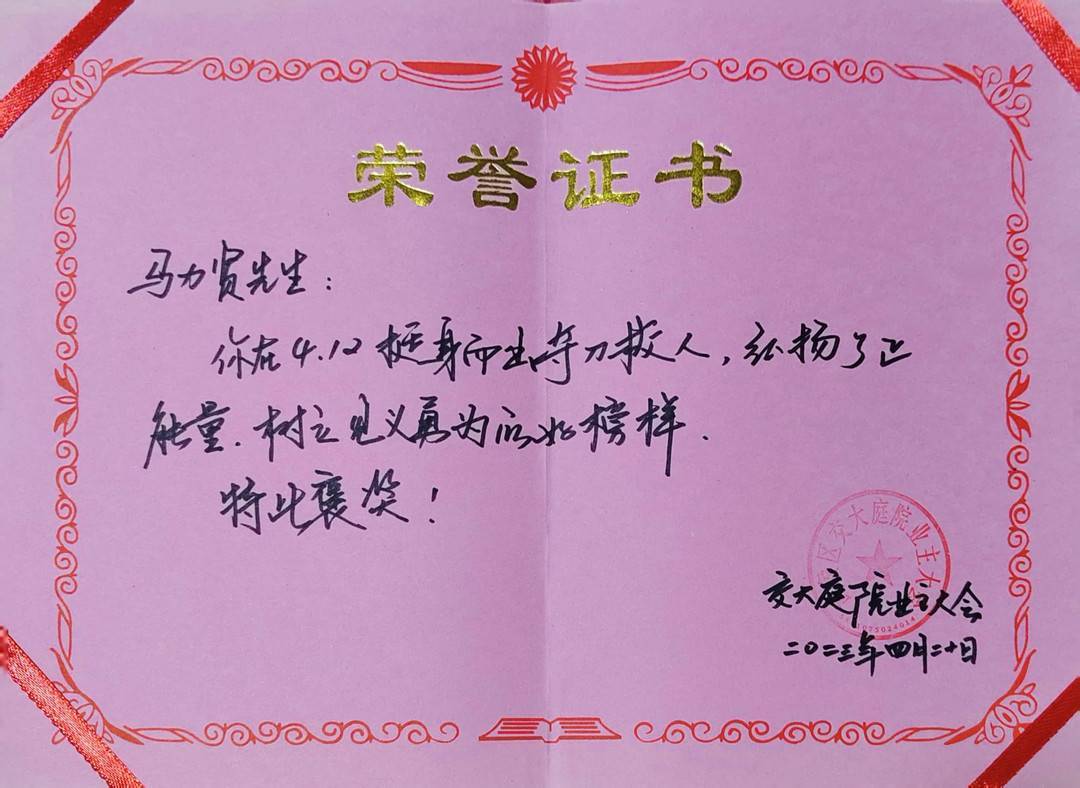 荣誉证书
马力贤先生：
你在4.12挺身而出夺刀救人，弘扬了正
能量.树立见义勇为的好榜样.
特此褒奖！
区交大庭院业主大
交大庭院业主大会
二〇二三年四月二十日